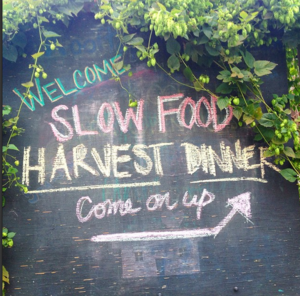 WELCOME
SLOW FOOD
HARVEST DINNER
Come on up